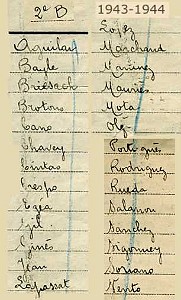 2e B
1943-1944
Aguilar
Bayle
Briesach
Brotons
Cano
Chavey
Cintas
Crespo
Egea
Gil
Ginès
Jean
Lapassat
Lopez
Marchand
Martinez
Mauriès
Mota
Olg
Portoguès
Rodriguez
Rueda
Salamon
Sanchez
Soriano
Vento